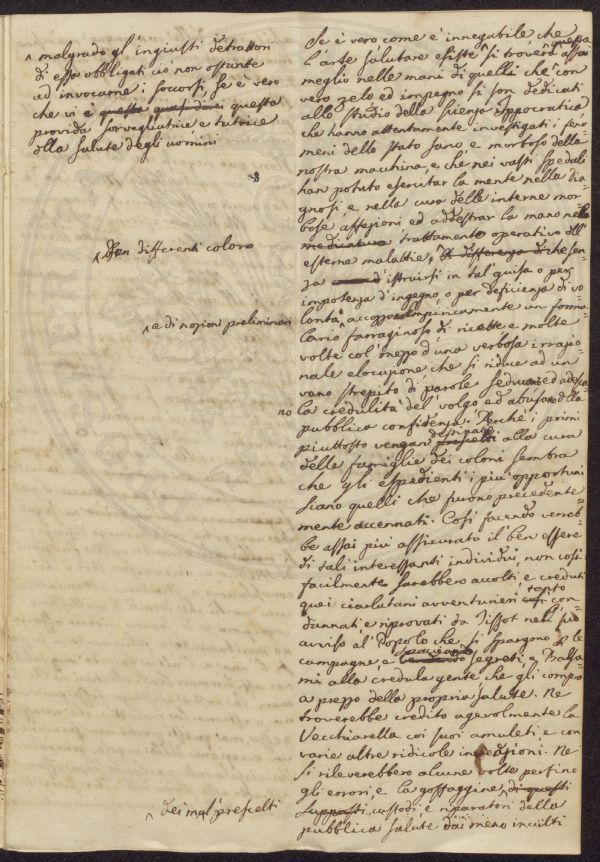 ^ malgrado gl' ingiusti detrattori
di essa obbligati ciò non ostante
ad invocarne i soccorsi, se è vero
che vi è questa
provida sorvegliatrice, e tutrice
della salute degli uomini
^ differenti coloro
^ e di nozioni preliminari
no
^ dei mal' prescelti
Se è vero come è innegabile che
l'arte salutare esiste ^ si troverà questa assai
meglio nelle mani di quelli che con
vero zelo ed impegno si son dedicati
allo studio della scienza Ippocratica
che hanno attentamente investigati i feno=
meni dello stato sano, e morboso della
nostra macchina, e che nei vasti spedali
han potuto esercitar la mente nella dia=
gnosi, e nella cura delle interne mor=
bose affezioni ed addestrar la mano nella
medicatura trattamento operativo dell'
esterne malattie, ^ A differenza di che sen=
za d'istruirsi in tal guisa o per
impotenza d'ingegno, o per deficienza di vo=
lontà ^ accozzano empiricamente un formo=
lario farraginoso di ricette, e molte
volte col mezzo d'una verbosa irrazio=
nale elocuzione che si riduce ad un
vano strepito di parole seducano ed adesca
la credulità del volgo ed abusano della
pubblica confidenza. Perchè i primi
piuttosto vengan destinati prescelti alla cura
delle famiglie dei coloni sembra
che gli espedienti i più opportuni
siano quelli che furono precedente=
mente accennati. Così facendo verreb=
be assai più assicurato il ben essere
di tali interessanti individui, non così
facilmente sarebbero accolti, e creduti
quei ciarlatani avventurieri tanto con=
dannati, e riprovati da Tissot nel suo
avviso al Popolo che si spargono p le
campagne, e spacciando segreti, e Balsa=
mi alla credula gente che gli compra
a prezzo della propria salute. Ne
troverebbe credito agevolmente la
Vecchiarella coi suoi amuleti, e con
varie altre ridicole invenzioni. Ne
si rileverebbero alcune volte persino
gli errori, e la goffaggine ^ di questi
supposti custodi, e riparatori della
pubblica salute dai meno incolti